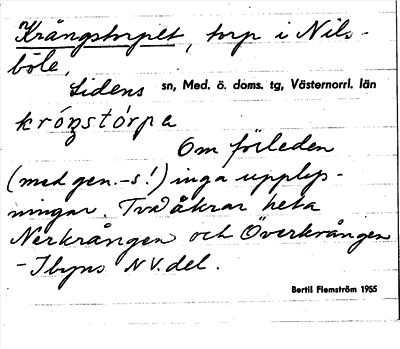 Krångstorpet, torp i Nils-
böle,
Lidens sn, Med. ö. doms. tg, Västernorrl. län
króŋstórpa
Om förleden
(med gen. -s!) inga upplys-
ningar. Två åkrar heta
Nerkrången och Överkrången
- I byns NV. del.
Bertil Flemström 1955